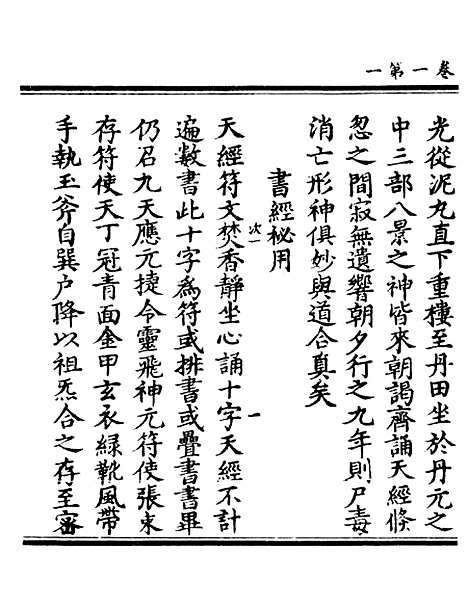 卷一第一
光從泥丸直下重樓至丹田坐於丹元之
中三部八景之神皆來朝謁齊誦天經倏
忽之間寂無遺響朝夕行之九年則尸毒
消亡形神俱妙與道合真矣
書經秘用
次一
天經符文焚香靜坐心誦十字天經不計
遍數書此十字為符或排書或疊書書畢
仍召九天應元捷令靈飛神元符使張束
存符使天丁冠青面金甲玄衣綠靴風帶
手執玉斧自巽户降以祖炁合之存至審